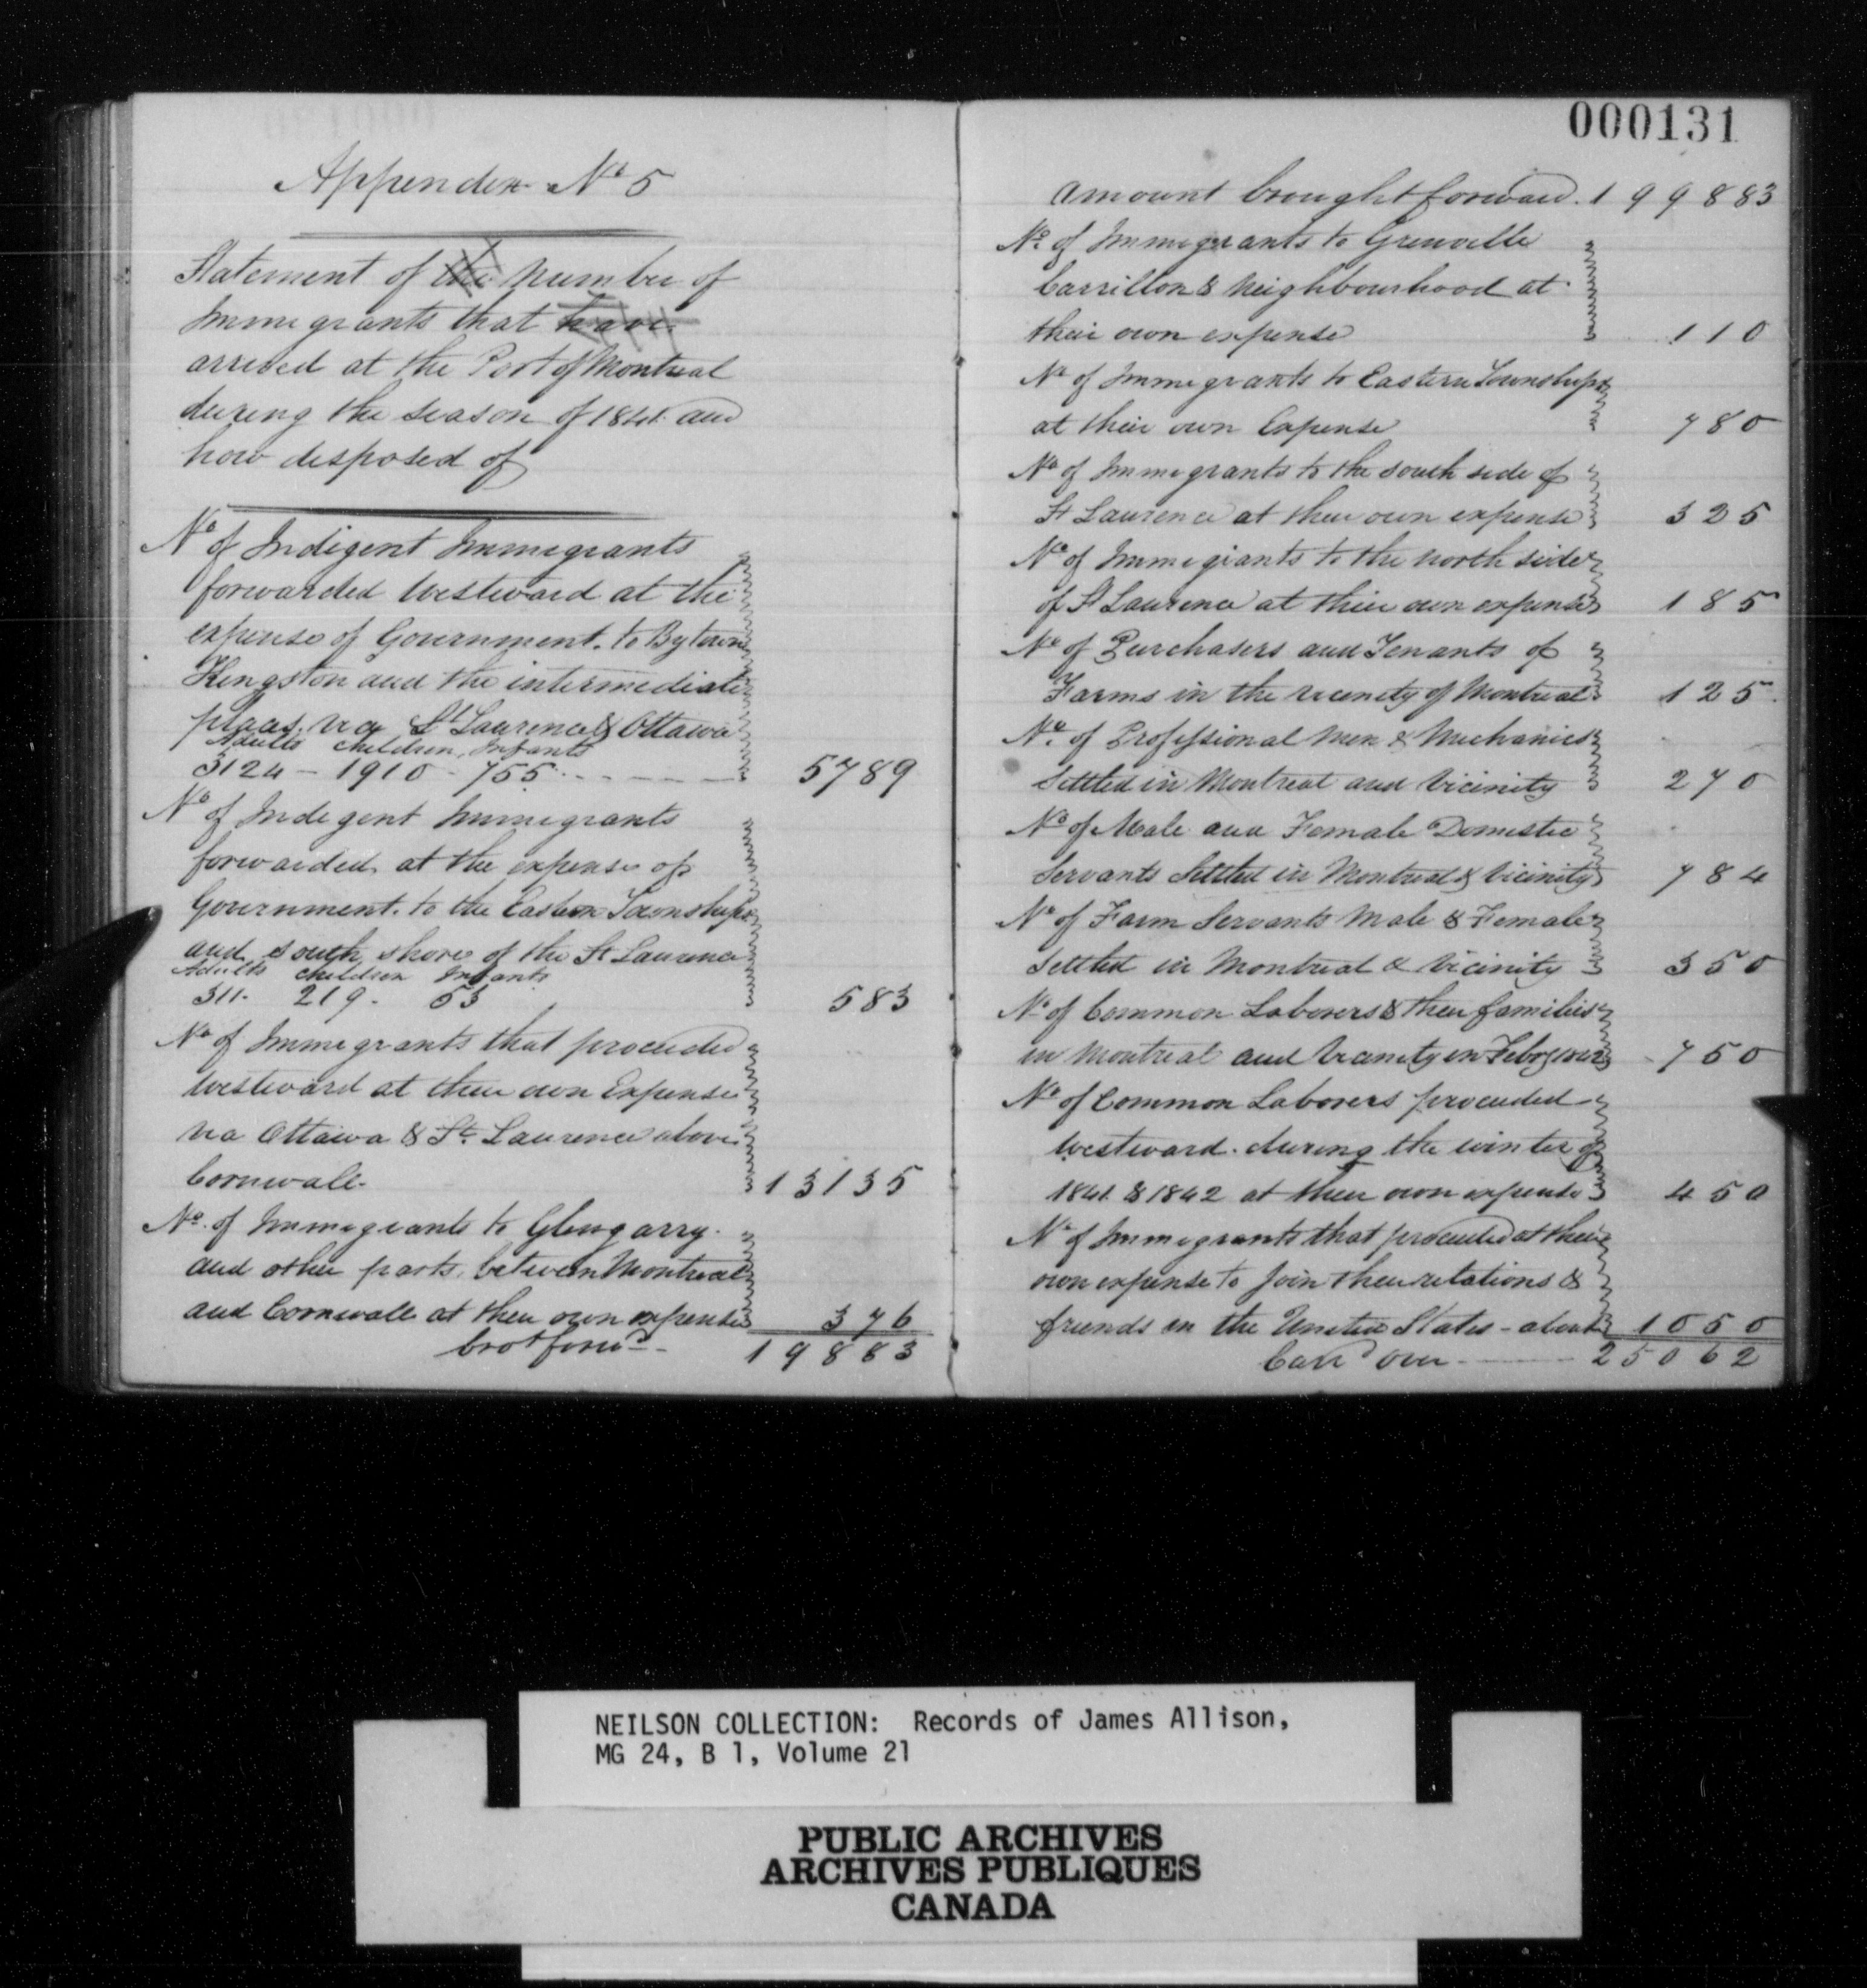 Appendix No 5
Statement of the Number of
Immigrants that have
arrived at the Port of Montreal
during the season of 1841 and
how disposed of
No of Indigent Immigrants
forwarded Westward at the
expense of Government. to Bytown
Kingston and the intermediate
places via St Laurence & Ottawa
Adults children, Infants
3124 - 1910 - 755 5789
No of Indigent Immigrants
forwarded at the expense of
Government. to the Eastern Townships
and south shore of the St Laurence
Adults children Infants
311. 219. 53 583
No of Immigrants that proceeded
Westward at their own Expense
via Ottawa & St. Laurence above
Cornwall. 13135
No. of Immigrants to Glengarry.
and other parts, between Montreal
and Cornwall at their own expense 376
brot forwd - 19883
000131
Amount brought forward. 199883
No. of Immigrants to Grenville
Carrillon & Neighbourhood at
their own expense 110
No of Immigrants to Eastern Townships
at their own Expense 780
No of Immigrants to the south side of
St Laurence at their own expense 325
No of Immigrants to the north side
of St Laurence at their own expense 185
No of Purchasers and Tenants of
Farms in the vicinity of Montreal 125
No. of Professional Men & Mechanics
Settled in Montreal and Vicinity 270
No of Male and Female Domestic
Servants Settled in Montreal & Vicinity 784
No of Farm Servants Male & Female
Settled in Montreal & Vicinity 350
No of Common Laborers & their families
in Montreal and vicinity in Feby 1842 750
No of Common Laborers proceeded
Westward. during the winter of
1841 & 1842 at their own expense 450
No of Immigrants that proceeded at their
own expense to join their relations &
friends in the United States - about 1050
Carrd over - 25062
NEILSON COLLECTION: Records of James Allison,
MG 24, B 1, Volume 21
PUBLIC ARCHIVES
ARCHIVES PUBLIQUES
CANADA